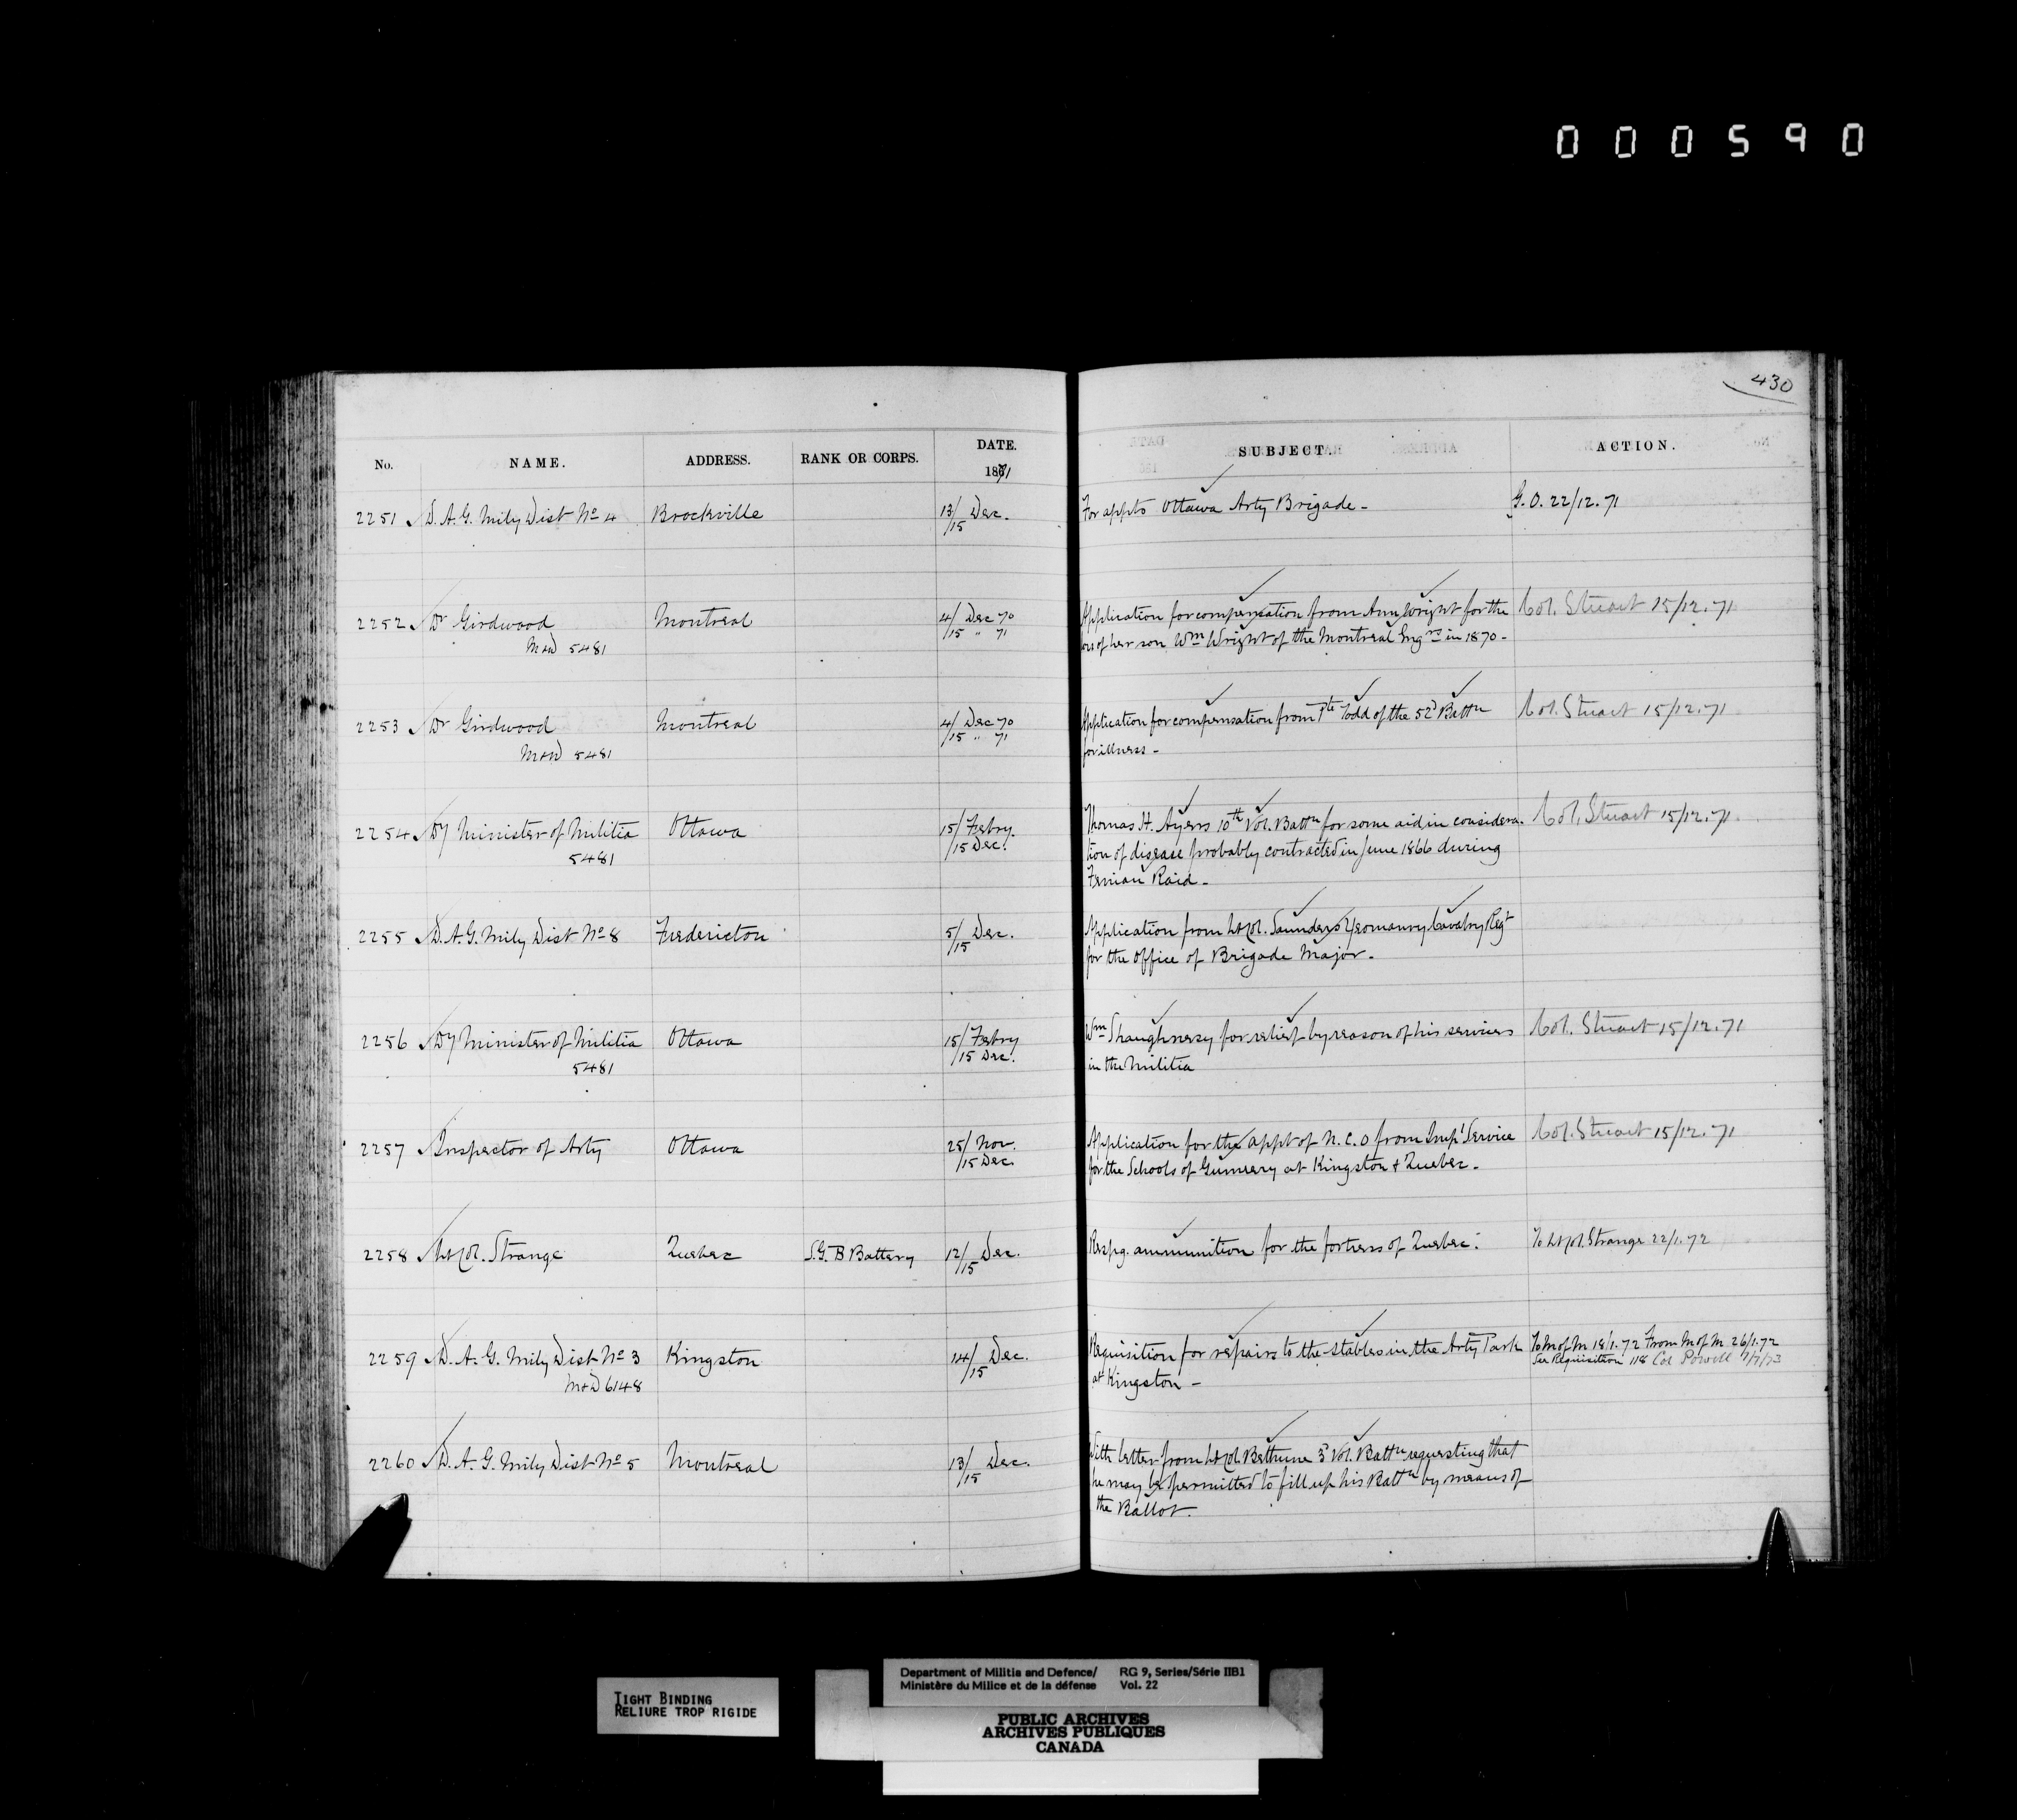 000590
430
No. NAME. ADDRESS. RANK OR CORPS. DATE. 1871 SUBJECT. ACTION.
2251 D. A. G. Mily Dist No 4 Brockville 13/15 Dec. For appts Ottawa Arty Brigade - G. O. 22/12.71
2252 Dr Girdwood Montreal 4/ Dec 70 Application for compensation from Ann Wright for the Col. Stuart 15/12.71
M&D 5481 /15 " 71 of her son Wm Wright of the Montreal Engrs in 1870 -
2253 Dr Girdwood Montreal 4/ Dec 70 Application for compensation from Pte Todd of the 52d Battn Col. Stuart 15/12.71
M&D 5481 /15 " 71 for illness -
2254 Dy Minister of Militia Ottawa 15/ Febry. Thomas H. Ayers 10th Vol. Battn for some aid in considera- Col. Stuart 15/12.71
5481 /15 Dec. tion of disease probably contracted in June 1866 during
Fenian Raid -
2255 D. A. G. Mily Dist No 8 Fredericton 5/15 Dec. Application from Lt Col. Saunders Yeomanry Cavalry Regt
for the office of Brigade Major -
2256 Dy Minister of Militia Ottawa 15/ Febry Wm Shaughnessy for relief by reason of his services Col. Stuart 15/12.71
5481 /15 Dec. in the Militia
2257 Inspector of Arty Ottawa 25/ Nov. Application for the appt of N. C. O from Impl Service Col. Stuart 15/12.71
/15 Dec. for the Schools of Gunnery at Kingston & Quebec -
2258 Lt Col. Strange Quebec S.G. B Battery 12/15 Dec. Respg. ammunition for the fortress of Quebec. To Lt Col. Strange 22/1.72
2259 D. A. G. Mily Dist No 3 Kingston 14/15 Dec. Requisition for repairs to the stables in the Arty Park To M of M 18/1.72 From M of M 26/1.72
M&D 6148 at Kingston - See Requisition 118 Col Powell 7/7/73
2260 D. A. G. Mily Dist No 5 Montreal 13/15 Dec. With letter from Lt Col Bethune 3d Vol. Battn requesting that
he may be permitted to fill up his Battn by means of
the Ballot.
TIGHT BINDING
RELIURE TROP RIGIDE
Department of Militia and Defence/ RG 9, Series/Série IIB1
Ministère du Milice et de la défense Vol. 22
PUBLIC ARCHIVES
ARCHIVES PUBLIQUES
CANADA